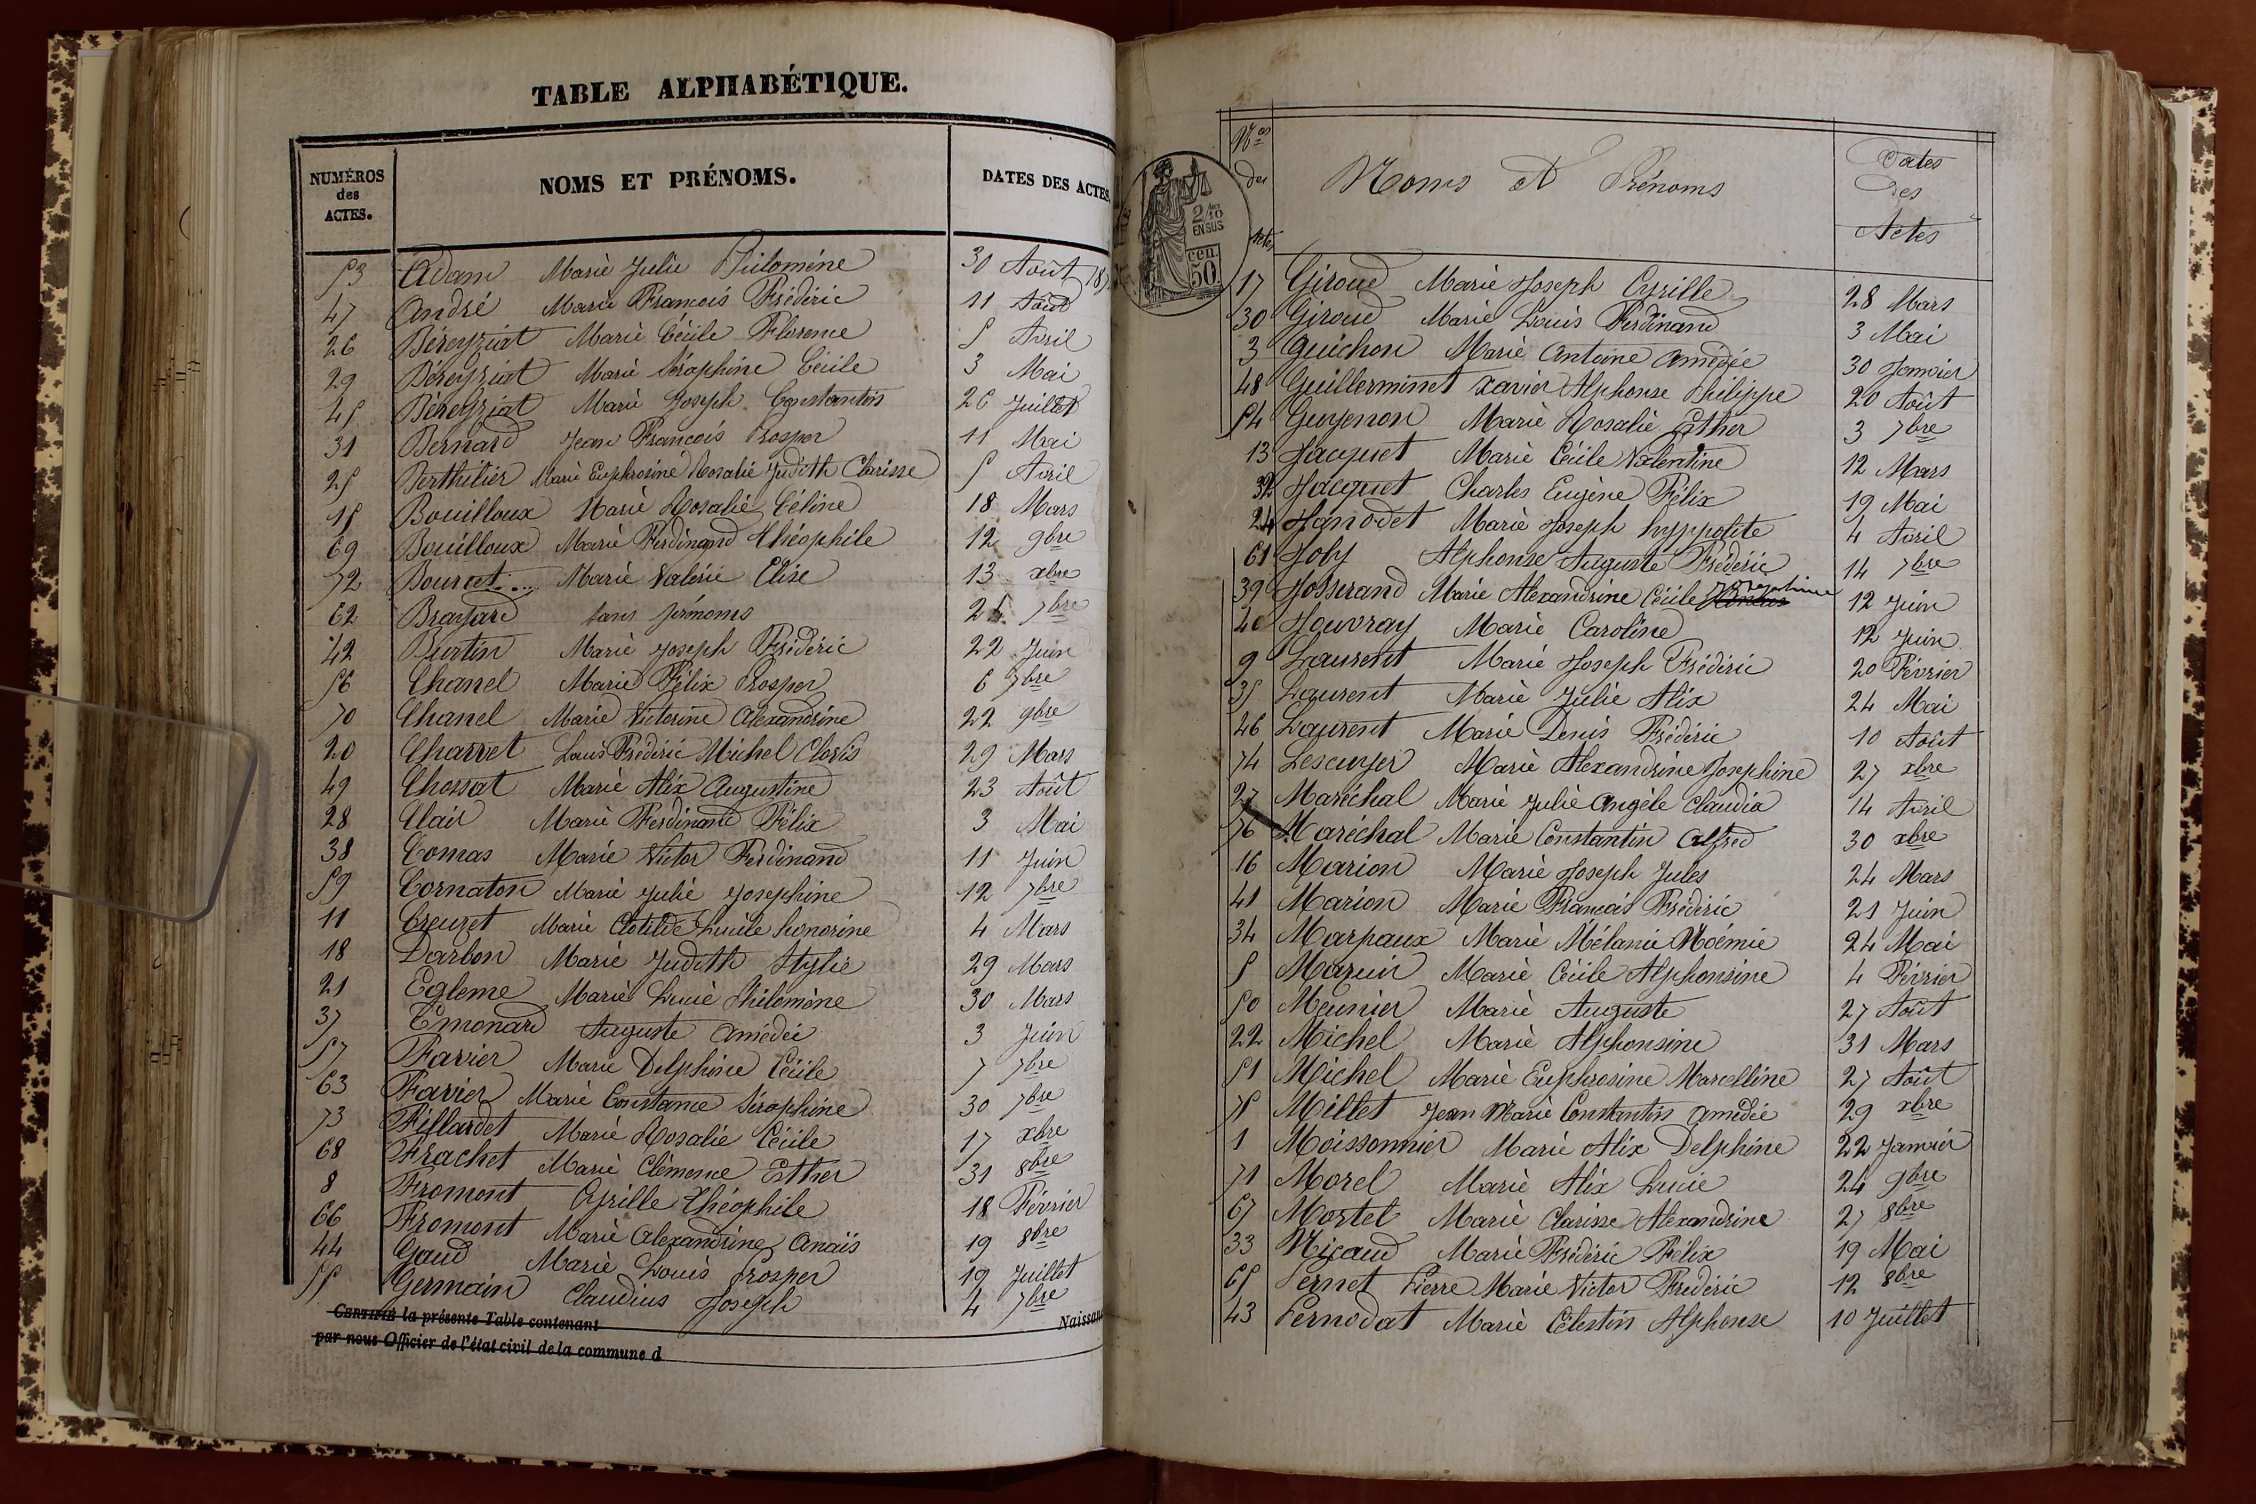 TABLE ALPHABÉTIQUE.
NUMÉROS des ACTES. NOMS ET PRÉNOMS. DATES DES ACTES.
53 Adam Marie Julie Philomène 30 Août
47 André Marie François Frédéric 11 Août
26 Béreyziat Marie Cécile Florence 5 Avril
29 Béreyziat Marie Séraphine Cécile 3 Mai
45 Béreyziat Marie Joseph Constantin 26 Juillet
31 Bernard Jean François Prosper 11 Mai
25 Berthilier Marie Euphrosine Rosalie Judith Clarisse 5 Avril
15 Bouilloux Marie Rosalie Céline 18 Mars
69 Bouilloux Marie Ferdinand Théophile 12 9bre
72 Bourcet Marie Valérie Elise 13 xbre
62 Brayard sans prénoms 7bre
42 Burtin Marie Joseph Frédéric 22 Juin
56 Chanel Marie Félix Prosper 6 7bre
70 Chanel Marie Victorine Alexandrine 22 9bre
20 Charvet Louis Frédéric Michel Clovis 29 Mars
49 Chossat Marie Alix Augustine 23 Août
28 Clair Marie Ferdinand Félix 3 Mai
38 Comas Marie Victor Ferdinand 11 Juin
59 Cornaton Marie Julie Josephine 12 7bre
11 Creuzet Marie Clotilde Lucile honorine 4 Mars
18 Darbon Marie Judith Stylie 29 Mars
21 Egleme Marie Lucie Philomène 30 Mars
37 Emonard Auguste Amédée 3 Juin
57 Favier Marie Delphine Cécile 7 7bre
63 Favier Marie Constance Séraphine 30 7bre
73 Fillardet Marie Rosalie Cécile 17 xbre
68 Frachet Marie Clémence Esther 31 8bre
8 Fromont Cyrille Théophile 18 Février
66 Fromont Marie Alexandrine Anaïs 19 8bre
44 Gaud Marie Louis Prosper 19 Juillet
55 Germain Claudius Joseph 4 7bre
CERTIFIÉ la présente Table contenant Naissan
par nous Officier de l'état civil de la commune d
Nos des Actes Noms et Prénoms Dates Des Actes
2/10 EN SUS
50 cen.
17 Giroud Marie Joseph Cyrille 28 Mars
30 Giroud Marie Louis Ferdinand 3 Mai
3 Guichon Marie Antoine Amédée 30 Janvier
48 Guillerminet Xavier Alphonse Philippe 20 Août
54 Guyenon Marie Rosalie Esther 3 7bre
13 Jacquet Marie Cécile Valentine 12 Mars
32 Jacquet Charles Eugène Félix 19 Mai
24 Janodet Marie Joseph hyppolite 4 Avril
61 Joly Alphonse Auguste Frédéric 14 7bre
39 Josserand Marie Alexandrine Cécile Josephine 12 Juin
40 Jouvray Marie Caroline 12 Juin
9 Laurent Marie Joseph Frédéric 20 Février
35 Laurent Marie Julie Alix 24 Mai
46 Laurent Marie Denis Frédéric 10 Août
74 Lescuyer Marie Alexandrine Josephine 27 xbre
27 Maréchal Marie Julie Angèle Claudia 14 Avril
76 Maréchal Marie Constantin Alfred 30 xbre
16 Marion Marie Joseph Jules 24 Mars
41 Marion Marie François Frédéric 21 Juin
34 Marpaux Marie Mélanie Noémie 24 Mai
5 Marie Cécile Alphonsine 4 Février
50 Meunier Marie Auguste 27 Août
22 Michel Marie Alphonsine 31 Mars
51 Michel Marie Euphrosine Marcelline 27 Août
75 Millet Jean Marie Constantin Amédée 29 xbre
1 Moissonnier Marie Alix Delphine 22 Janvier
71 Morel Marie Alix Lucie 24 9bre
67 Mortel Marie Clarisse Alexandrine 27 8bre
33 Nicaud Marie Frédéric Félix 19 Mai
65 Pernet Pierre Marie Victor Frédéric 12 8bre
43 Pernodat Marie Célestin Alphonse 10 Juillet